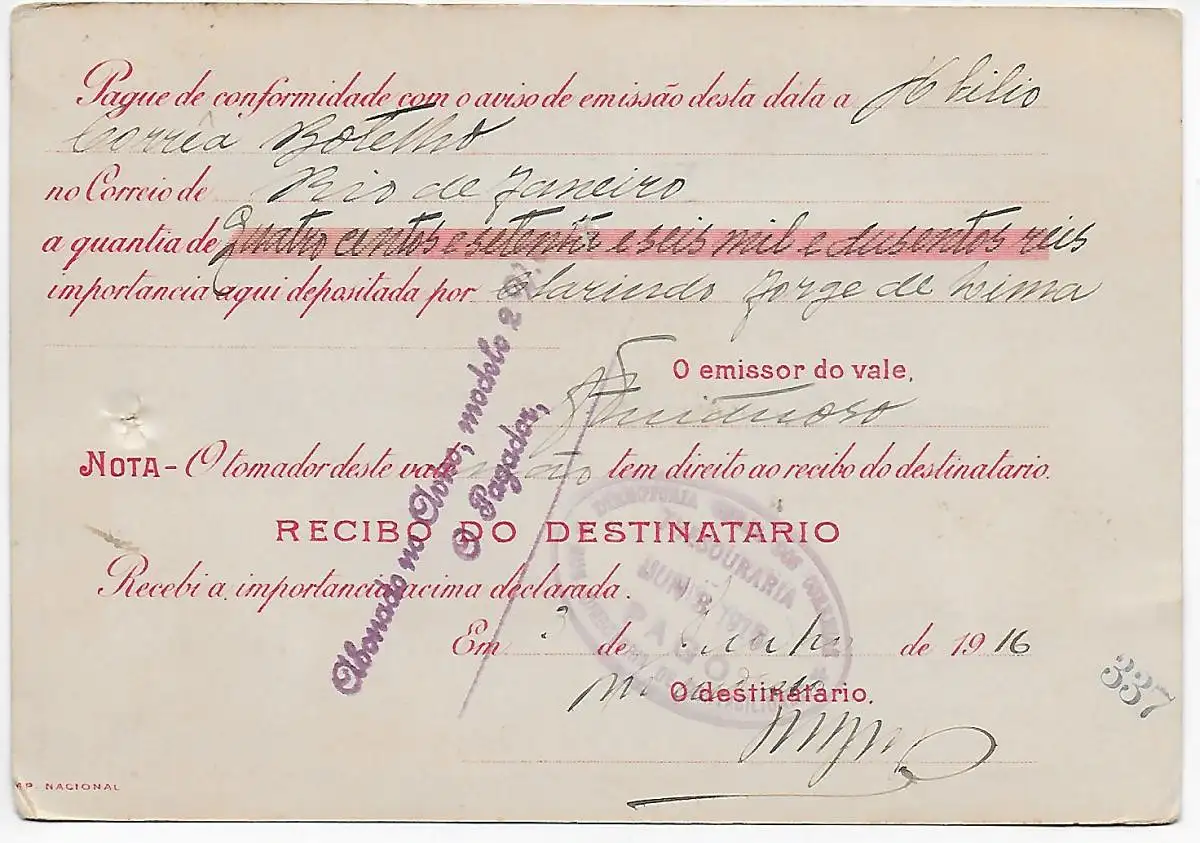 Pague de conformidade com o aviso de emissão desta data a Abilio
Corrêa Botelho
no Correio de Rio de Janeiro
a quantia de Quatro centos e setenta e seis mil e dusentos réis
importancia aqui depositada por Clarindo Jorge de Lima
O emissor do vale,
NOTA - O tomador deste vale não tem direito ao recibo do destinatario.
RECIBO DO DESTINATARIO
Recebi a importancia acima declarada.
Em 3 de Junho de 1916
O destinatário.
Abonado no livro, modelo 2
O Pagador,
THESOURARIA
JUN 3 1916
PAGO
337
NACIONAL